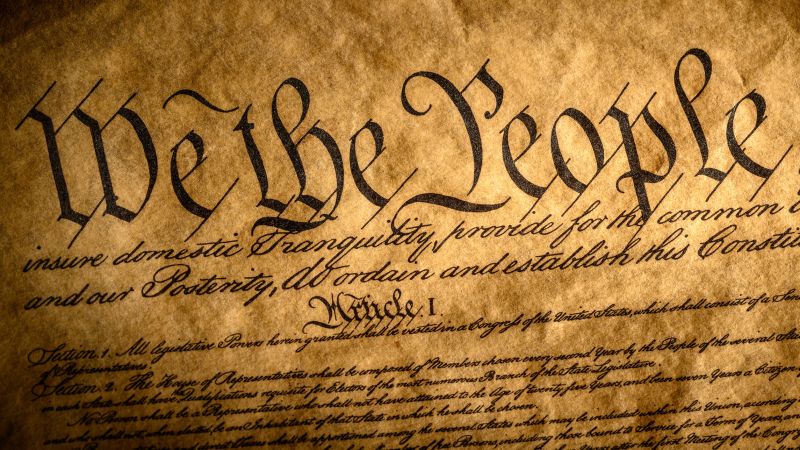 We the People
insure domestic Tranquility, provide for the common
and our Posterity, do ordain and establish this Constitu
Article. I.
Section. 1. All legislative Powers herein granted shall be vested in a Congress of the United States, which shall consist of a Sen
of Representatives.
Section. 2. The House of Representatives shall be composed of Members chosen every second Year by the People of the several
in each State shall have the Qualifications requisite for Electors of the most numerous Branch of the State Legislature.
No Person shall be a Representative who shall not have attained to the Age of twenty five Years, and been seven Years a Citizen
and who shall not, when elected, be an Inhabitant of that State in which he shall be chosen.
shall be apportioned among the several States which may be included within this Union, according
of free Persons, including those bound to Service for a Term of Years, and
Years after the first Meeting of the Congr